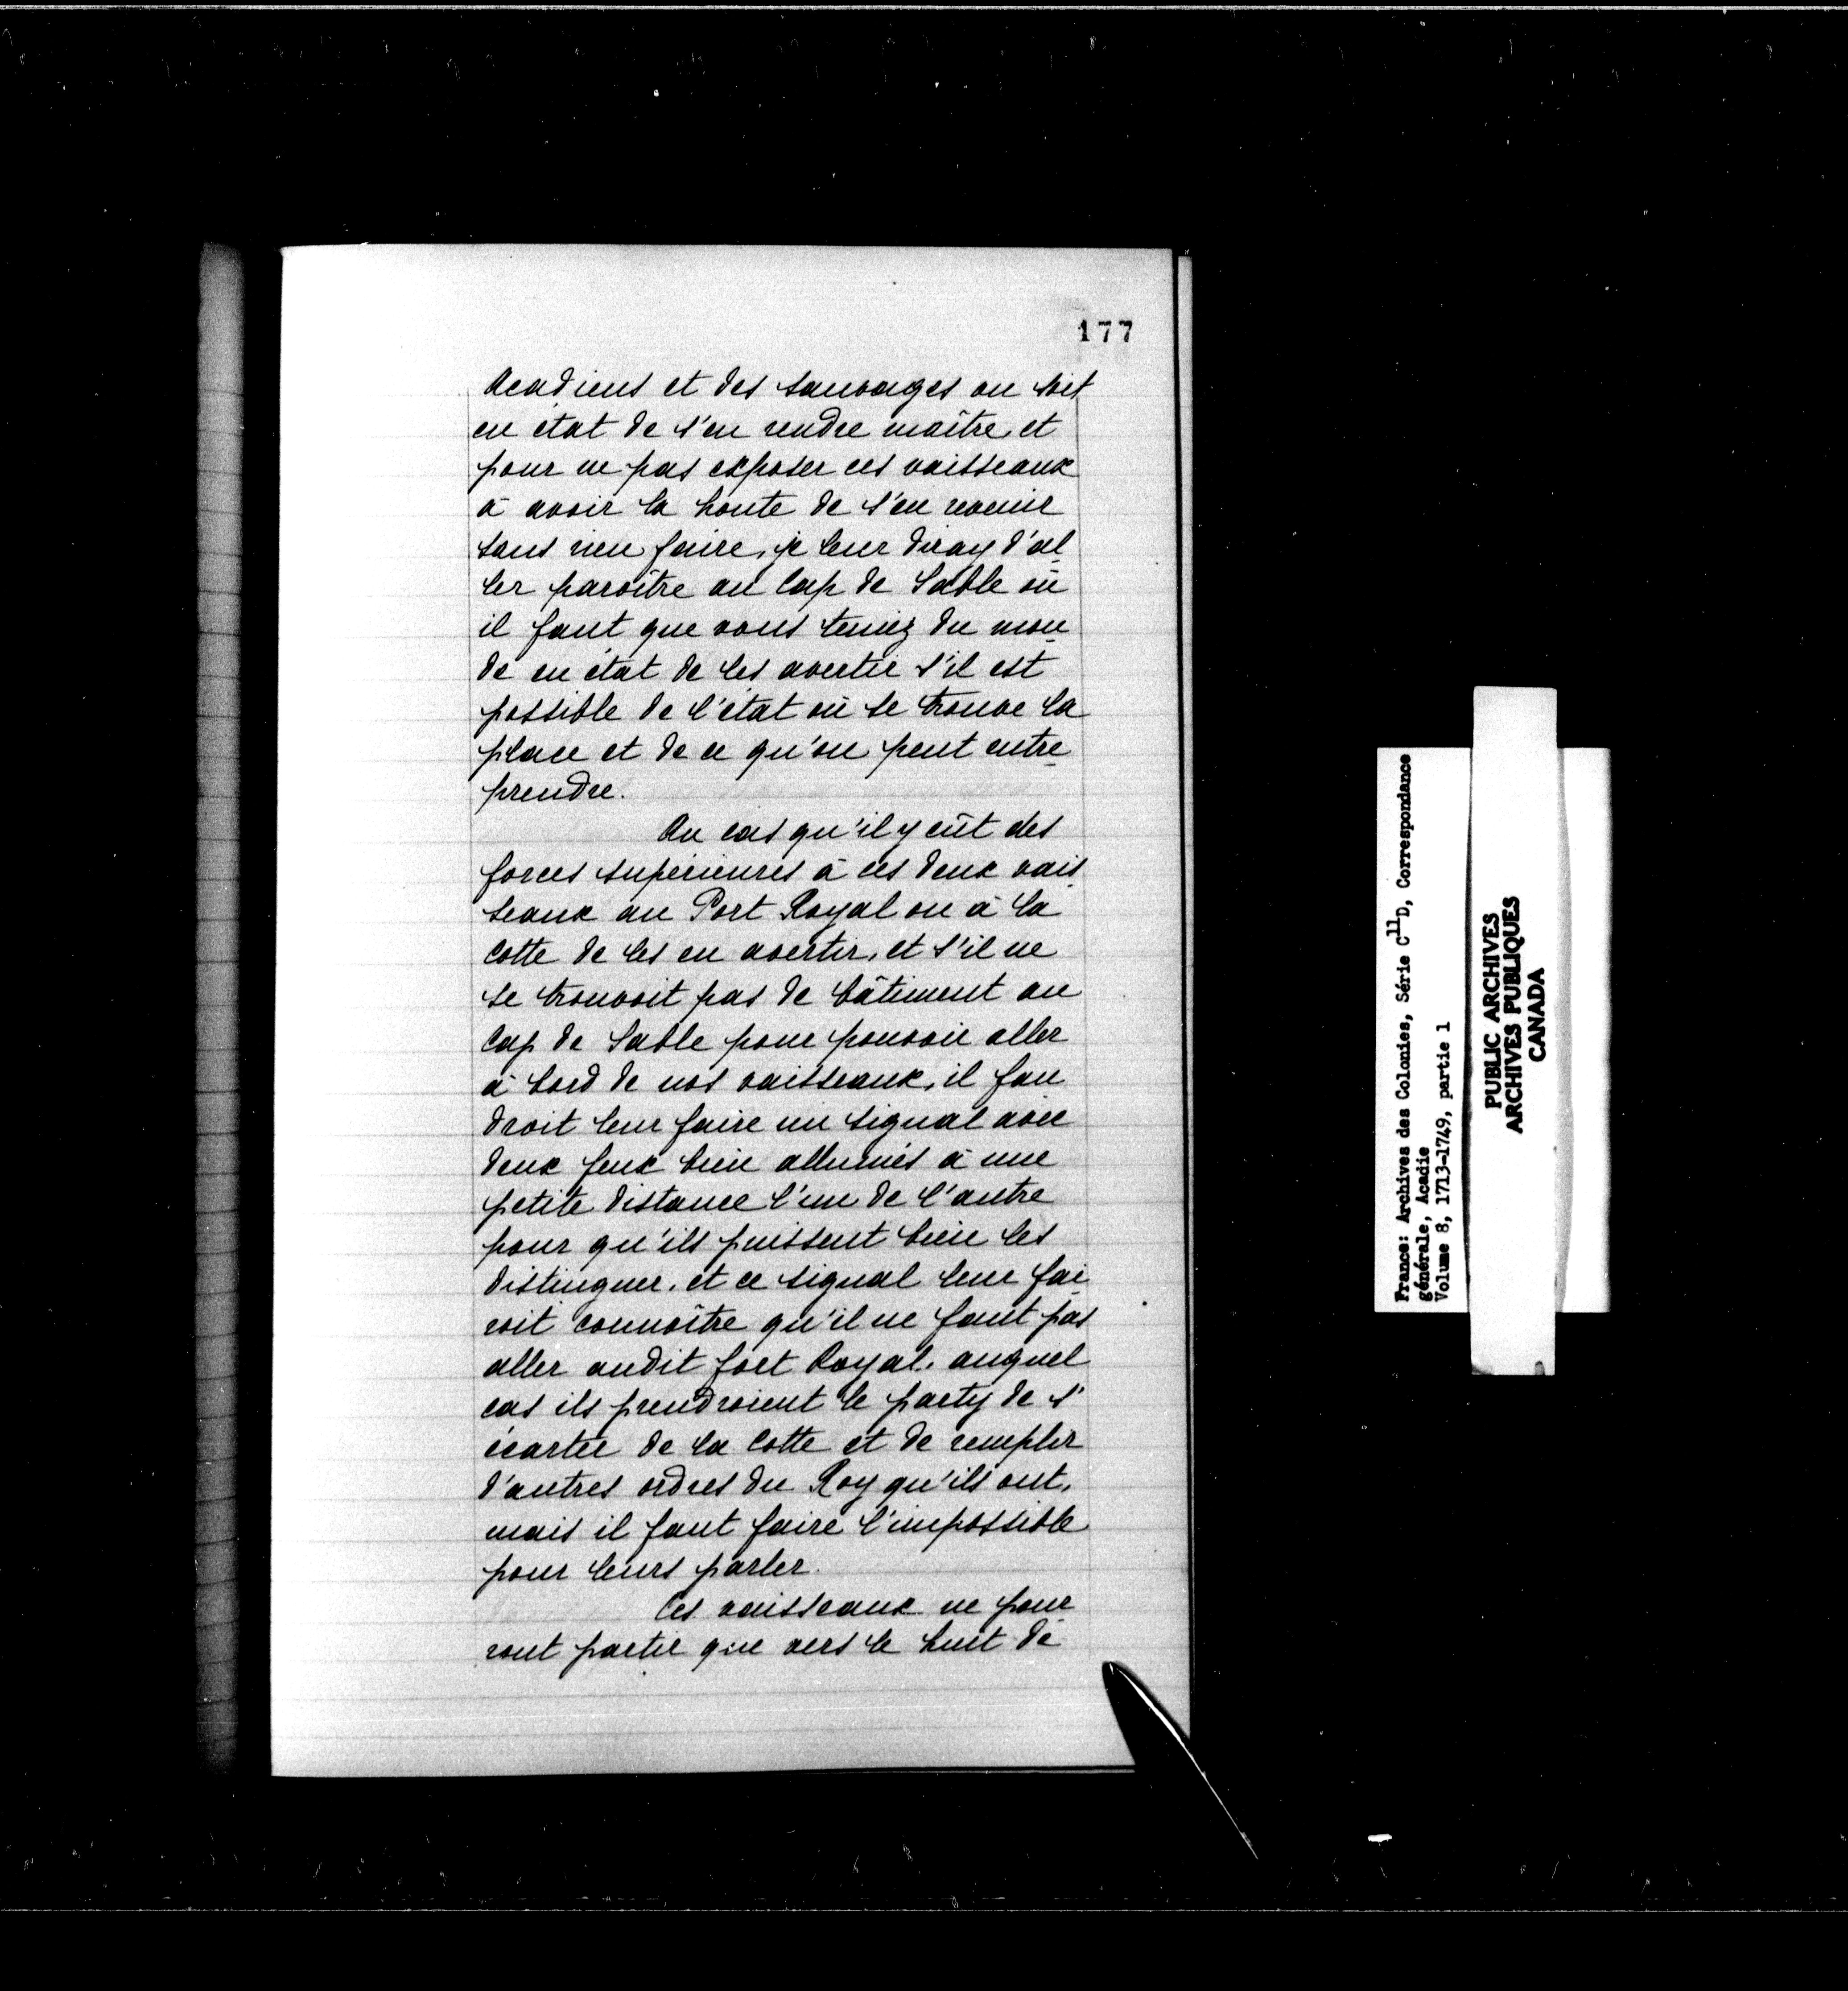 177
Acadiens et des sauvages on soit
en état de s'en rendre maître, et
pour ne pas exposer ces vaisseaux
à avoir la honte de s'en revenir
sans rien faire, je leur diray d'al
ler paroître au Cap de Sable où
il faut que vous teniez du mon
de en état de les avertir s'il est
possible de l'état où se trouve la
place et de ce qu'on peut entre
prendre.
Au cas qu'il y eût des
forces supérieures à ces deux vais
seaux au Port Royal ou à la
Cotte de les en avertir, et s'il ne
se trouvoit pas de bâtiment au
Cap de Sable pour pouvoir aller
à bord de nos vaisseaux, il fau
droit leur faire un signal avec
deux feux bien allumés à une
petite distance l'un de l'autre
pour qu'ils puissent bien les
distinguer, et ce signal leur fai
roit connoître qu'il ne faut pas
aller audit fort Royal, auquel
cas ils prendroient le party de s'
écarter de la Cotte et de remplir
d'autres ordres du Roy qu'ils ont,
mais il faut faire l'impossible
pour leurs parler.
Ces vaisseaux ne pour
ront partir que vers le huit de
France: Archives des Colonies, Série C11D, Correspondance
générale, Acadie
Volume 8, 1713-1749, partie 1
PUBLIC ARCHIVES
ARCHIVES PUBLIQUES
CANADA